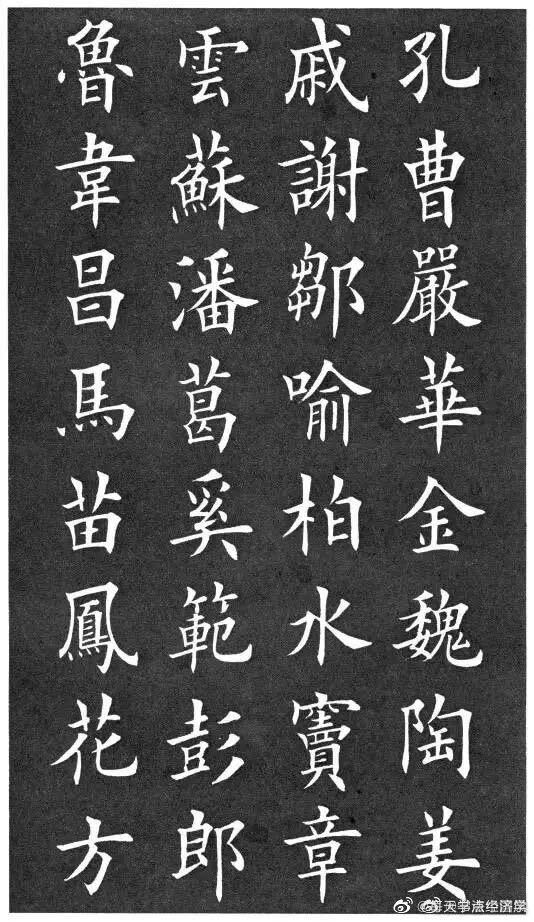 孔曹嚴華金魏陶姜
戚謝鄒喻柏水竇章
雲蘇潘葛奚範彭郎
魯韋昌馬苗鳳花方
@每天学点经济学